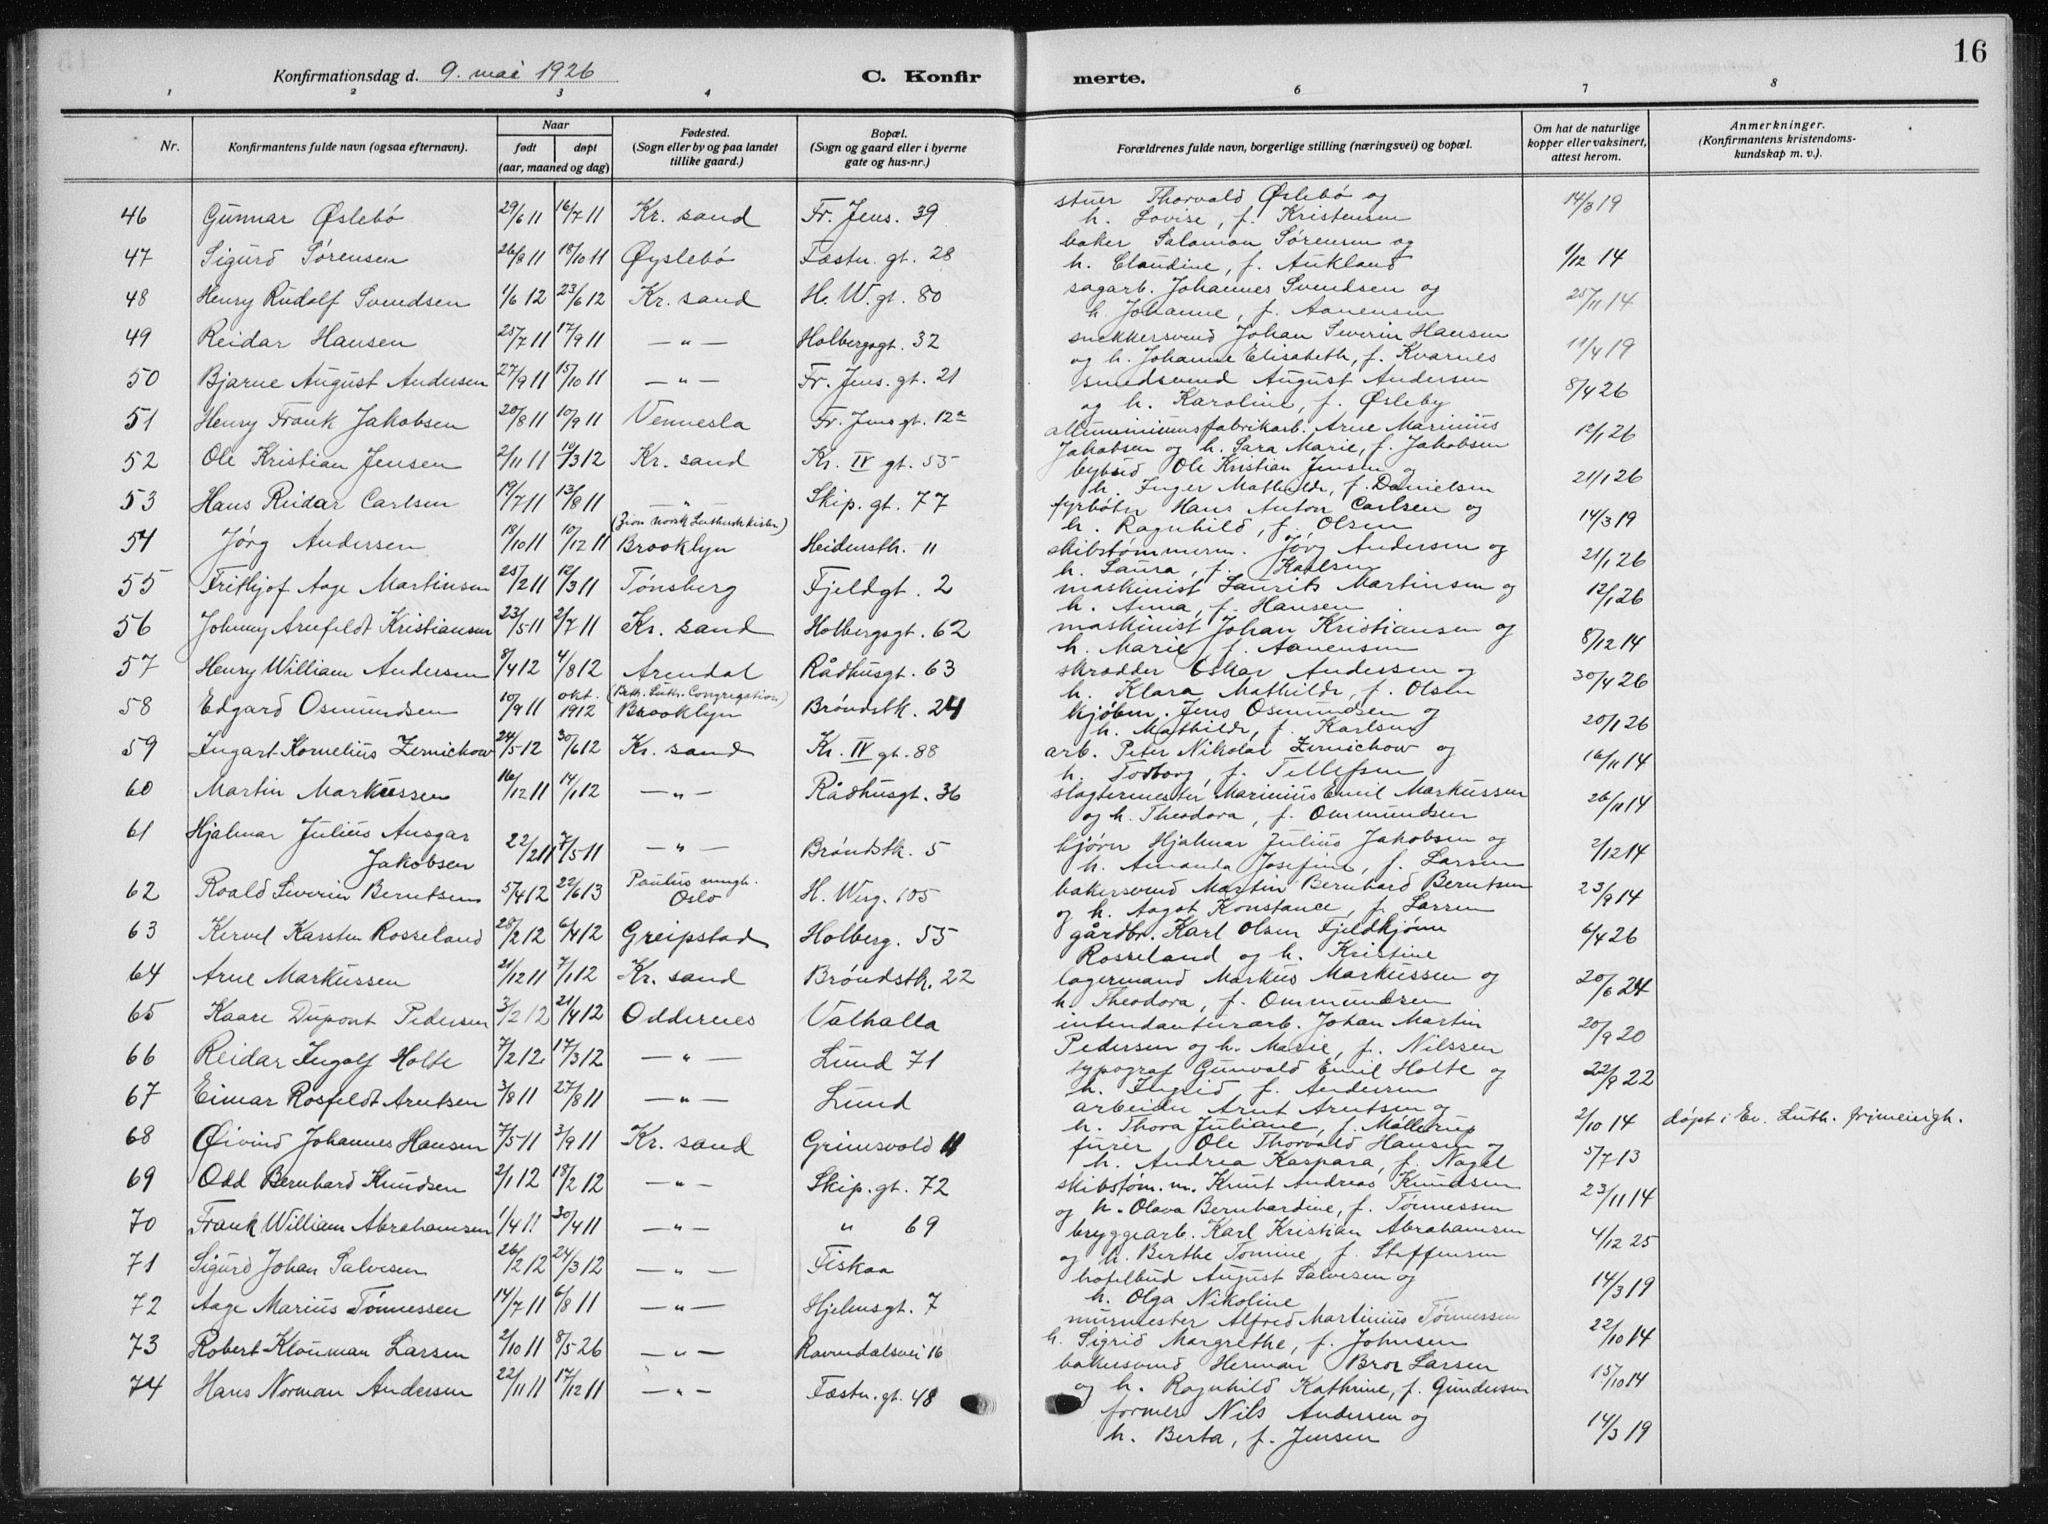 16
Konfirmationsdag d. 9. mai 1926 C. Konfir merte.
1 2 3 4 6 7 8
Nr. Konfirmantens fulde navn (ogsaa efternavn). Naar født døpt (aar, maaned og dag) Fødested. (Sogn eller by og paa landet tillike gaard.) Bopæl. (Sogn og gaard eller i byerne gate og hus-nr.) Forældrenes fulde navn, borgerlige stilling (næringsvei) og bopæl. Om hat de naturlige kopper eller vaksinert, attest herom. Anmerkninger. (Konfirmantens kristendomskundskap m. v.).
46 Gunnar Øslebø 29/6 11 16/7 11 Kr. sand Fr. Jens. 39 stuer Thorvald Øslebø og h. Lovise, f. Kristensen 14/3 19
47 Sigurd Sørensen 26/8 11 18/10 11 Øyslebø Fæstn. gt. 28 baker Salamon Sørensen og h. Claudine, f. Aukland 1/12 14
48 Henry Rudolf Svendsen 1/6 12 23/6 12 Kr. sand H. W. gt. 80 sagarb. Johannes Svendsen og h. Johanne, f. Aanensen 25/11 14
49 Reidar Hansen 25/7 11 17/9 11 — „ — Holbergsgt. 32 snekkersvend Johan Severin Hansen og h. Johanne Elisabeth, f. Kvarnes 11/4 19
50 Bjarne August Andersen 27/9 11 15/10 11 — „ — Fr. Jens. gt. 21 smedsvend August Andersen og h. Karoline, f. Øsleby 8/4 26
51 Henry Frank Jakobsen 20/8 11 10/9 11 Vennesla Fr. Jens gt. 12a alluminiumsfabrikarb. Arne Marinius Jakobsen og h. Sara Marie, f. Jakobsen 12/1 26
52 Ole Kristian Jensen 2/11 11 10/3 12 Kr. sand Kr. IV gt. 55 bybud Ole Kristian Jensen og h. Inger Mathilde, f. Danielsen 21/1 26
53 Hans Reidar Carlsen 19/7 11 13/8 11 — „ — Skip. gt. 77 fyrbøter Hans Anton Carlsen og h. Ragnhild, f. Olsen 14/3 19
54 Jørg Andersen 18/10 11 10/12 11 (Zion norsk Lutherske kirke) Brooklyn Heidensth. 11 skibstømmerm. Jörg Andersen og h. Laura, f. Karlsen 21/1 26
55 Frithjof Aage Martinsen 25/2 11 12/3 11 Tønsberg Fjeldgt. 2 maskinist Laurits Martinsen og h. Anna, f. Hansen 12/1 26
56 Johnny Arnfeldt Kristiansen 23/5 11 2/7 11 Kr. sand Holbergsgt. 62 maskinist Johan Kristiansen og h. Marie f. Aanensen 8/12 14
57 Henry William Andersen 8/4 12 4/8 12 Arendal Rådhusgt. 63 skrædder Oskar Andersen og h. Klara Mathilde, f. Olsen 30/4 26
58 Edgard Osmundsen 10/9 11 okt. 1912 (Beth. Luth. Congregation) Brooklyn Brøndstk. 24 kjøbm. Jens Osmundsen og h. Mathilde, f. Karlsen 20/1 26
59 Ingart Kornelius Zernichow 24/5 12 30/6 12 Kr. sand Kr. IV gt. 88 arb. Peter Nikolai Zernichow og h. Torborg, f. Tellefsen 16/11 14
60 Martin Markussen 16/12 11 14/1 12 — „ — Rådhusgt. 36 slagtermester Marinius Emil Markussen og h. Theodora, f. Ommundsen 26/11 14
61 Hjalmar Julius Ansgar Jakobsen 22/2 11 7/5 11 — „ — Brøndstk. 5 kjører Hjalmar Julius Jakobsen og h. Amanda Josefine, f. Larsen 2/12 14
62 Roald Severin Berntsen 5/4 12 22/6 13 Paulus mngh. Oslo H. Werg. 105 bakersvend Martin Bernhard Berntsen og h. Aagot Konstance, f. Larsen 23/9 14
63 Kervel Karsten Rosseland 28/2 12 6/4 12 Greipstad Holberg. 55 gårdbr. Karl Olsen Fjeldkjønn Rosseland og h. Kristine 6/4 26
64 Arne Markussen 21/12 11 7/1 12 Kr. sand Brøndstk. 22 lagermand Markus Markussen og h. Theodora, f. Ommundsen 20/6 24
65 Kaare Dupont Pedersen 3/2 12 21/4 12 Oddernes Valhalla intendanturarb. Johan Martin Pedersen og h. Marie, f. Nilssen 20/9 20
66 Reidar Ingolf Holte 7/2 12 17/3 12 — „ — Lund 71 typograf Gunvald Emil Holte og h. Ingrid f. Andersen 22/9 22
67 Einar Rosfeldt Arntsen 3/8 11 27/8 11 — „ — Lund arbeider Arnt Arntsen og h. Thora Juliane, f. Møllerup 2/10 14 døpt i Ev. Luth. frimenigh.
68 Øivind Johannes Hansen 7/5 11 3/9 11 Kr. sand Grimsvold 11 furer Ole Thorvald Hansen og h. Andrea Kaspara, f. Nagel 5/7 13
69 Odd Bernhard Knudsen 2/1 12 18/2 12 — „ — Skip. gt. 72 skibstøm. m. Knut Andreas Knudsen og h. Olava Bernhardine, f. Tønnessen 23/11 14
70 Frank William Abrahamsen 1/4 11 30/4 11 — „ — „ 69 bryggearb. Karl Kristian Abrahamsen og h. Berthe Tomine, f. Steffensen 4/12 25
71 Sigurd Johan Salvesen 26/2 12 24/3 12 — „ — Fiskaa hotelbud August Salvesen og h. Olga Nikoline 14/3 19
72 Aage Marius Tønnessen 14/7 11 6/8 11 — „ — Hjelmsgt. 7 murmester Alfred Martinius Tønnessen h. Sigrid Margrethe, f. Johnsen 22/10 14
73 Robert Klouman Larsen 2/10 11 8/5 26 — „ — Ravnedalsvei 16 bakersvend Herman Bror Larsen og h. Ragnhild Kathrine, f. Gundersen 15/10 14
74 Hans Norman Andersen 22/11 11 17/12 11 — „ — Fæstn. gt. 48 former Nils Andersen og h. Berta, f. Jensen 14/3 19